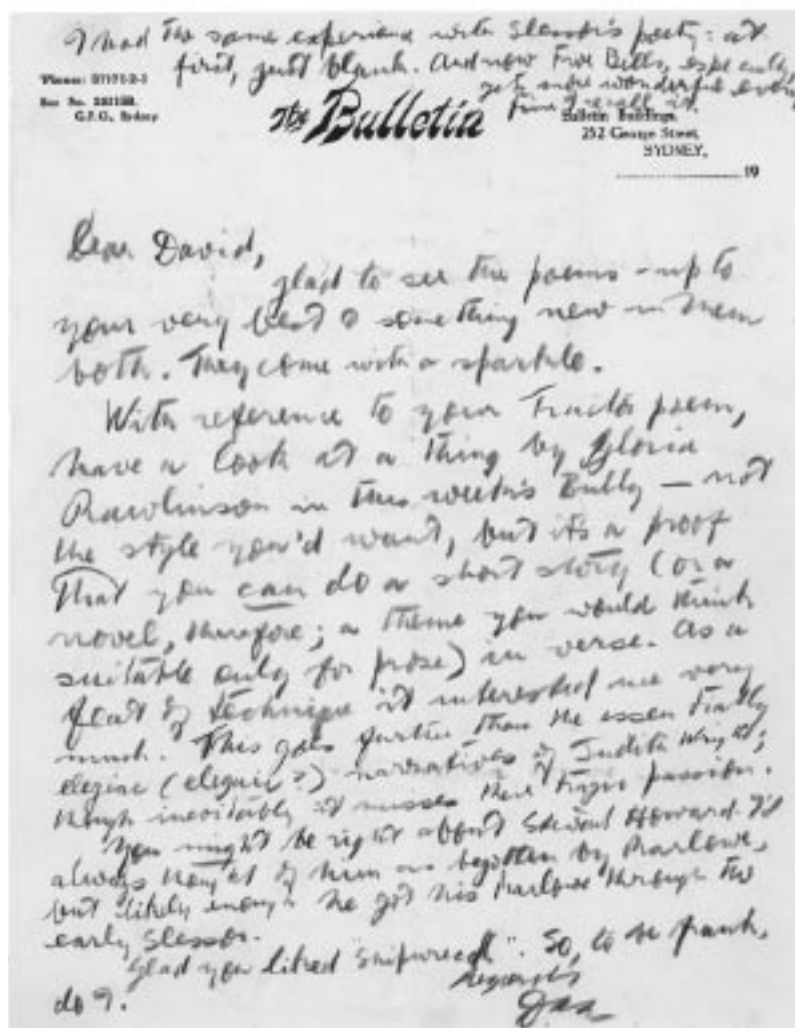 I had the same experience with Slessor's poetry: at
first, just blank. And now Five Bells, especially,
gets more wonderful every
time I recall it.
Box No. 2521BB.
G.P.O., Sydney
The Bulletin
Bulletin Buildings,
252 George Street,
SYDNEY,
19
Dear David,
glad to see the poems - up to
your very best & something new in them
both. They come with a sparkle.
With reference to your Tractor poem,
have a look at a thing by Gloria
Rawlinson in this week's Bully — not
the style you'd want, but it's a proof
that you can do a short story (or a
novel, therefore; a theme you would think
suitable only for prose) in verse. As a
feat of technique it interested me very
much. This goes further than the essentially
elegiac (elegaic?) narratives of Judith Wright;
though inevitably it misses their tragic passion.
You might be right about Stewart Howard. I'd
always thought of him as begotten by Marlowe,
but likely enough he got his Marlowe through the
early Slessor.
Glad you liked "Shipwreck". So, to be frank,
do I.
Regards
Doug